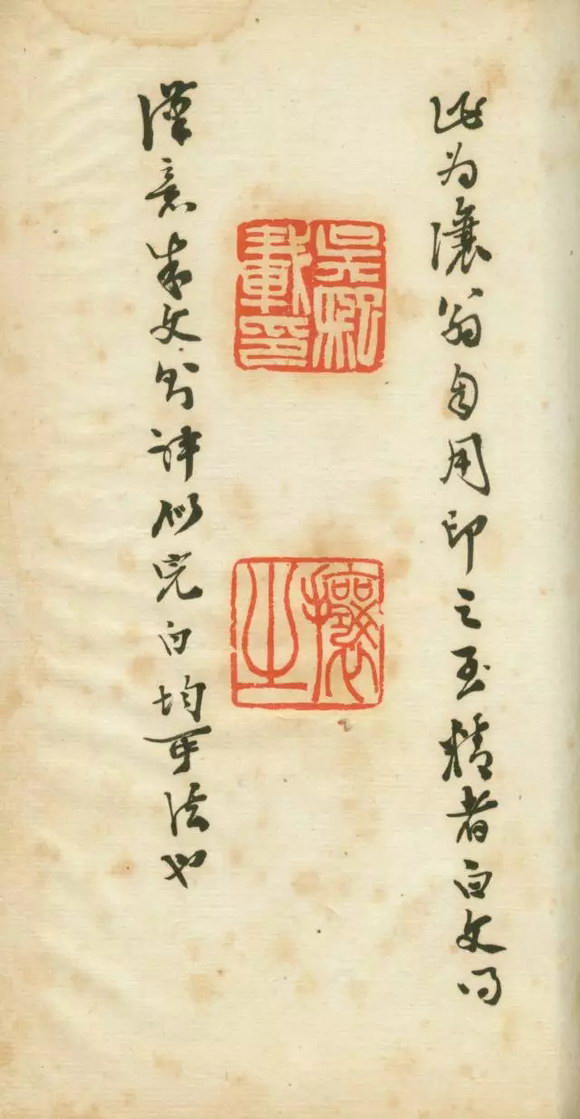 此为讓翁自用印之至精者白文得
吳熙載印
攘之
漢意朱文則神似完白均可法也